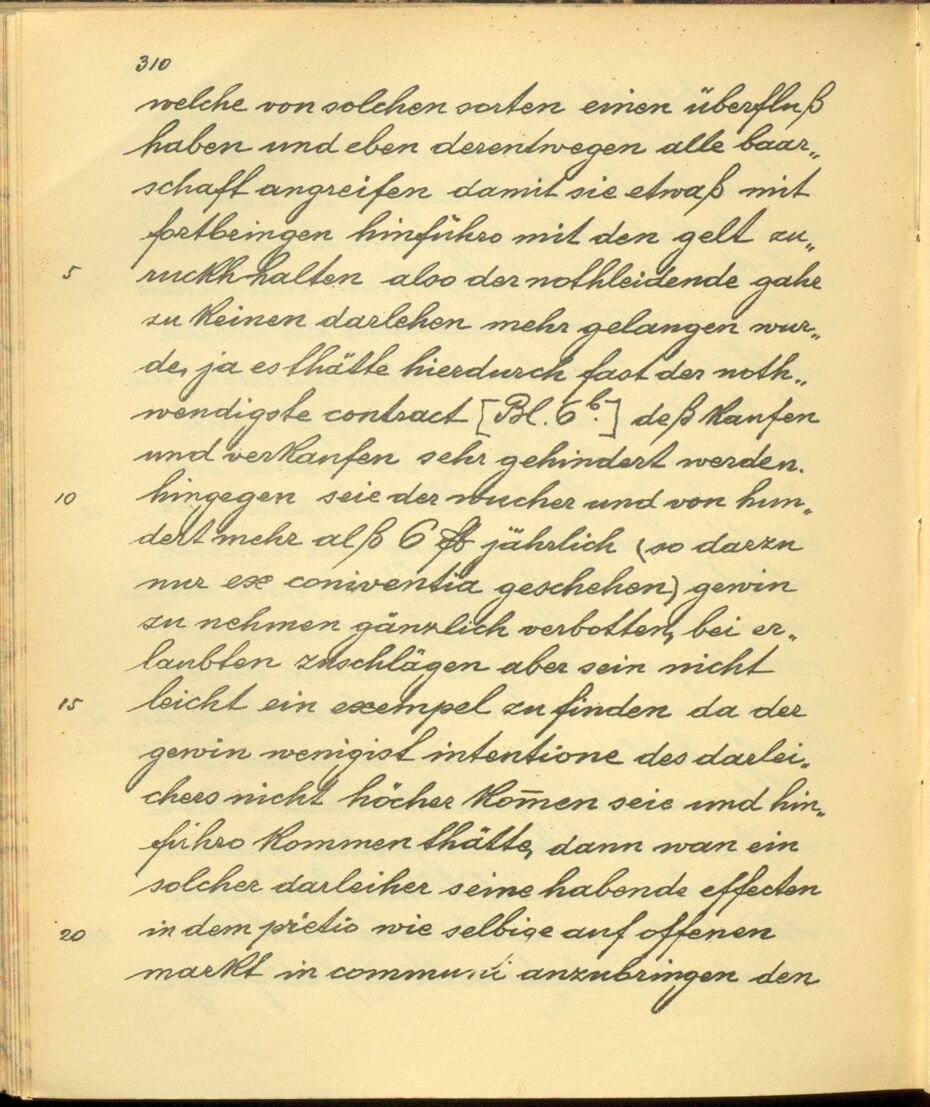 310
welche von solchen sorten einen überfluß
haben und eben derentwegen alle baar„
schaft angreifen damit sie etwaß mit
fortbringen hinführo mit den gelt zu„
5 ruckh halten also der nothleidende gahr
zu keinen darlehen mehr gelangen wur„
de, ja es thätte hierdurch fast der noth„
wendigste contract [Bl. 6 b.] deß kaufen
und verkaufen sehr gehindert werden.
10 hingegen seie der wucher und von hun„
dert mehr alß 6 fl jährlich (so darzu
nur ex coniventia geschehen) gewin
zu nehmen gänzlich verbotten, bei er„
laubten zuschlägen aber sein nicht
15 leicht ein exempel zu finden da der
gewin wenigist intentione des darlei„
chers nicht höcher kom̄en seie und hin„
führo kommen thätte, dann wan ein
solcher darleiher seine habende effecten
20 in dem prietio wie selbige auf offenen
markt in communi anzubringen den